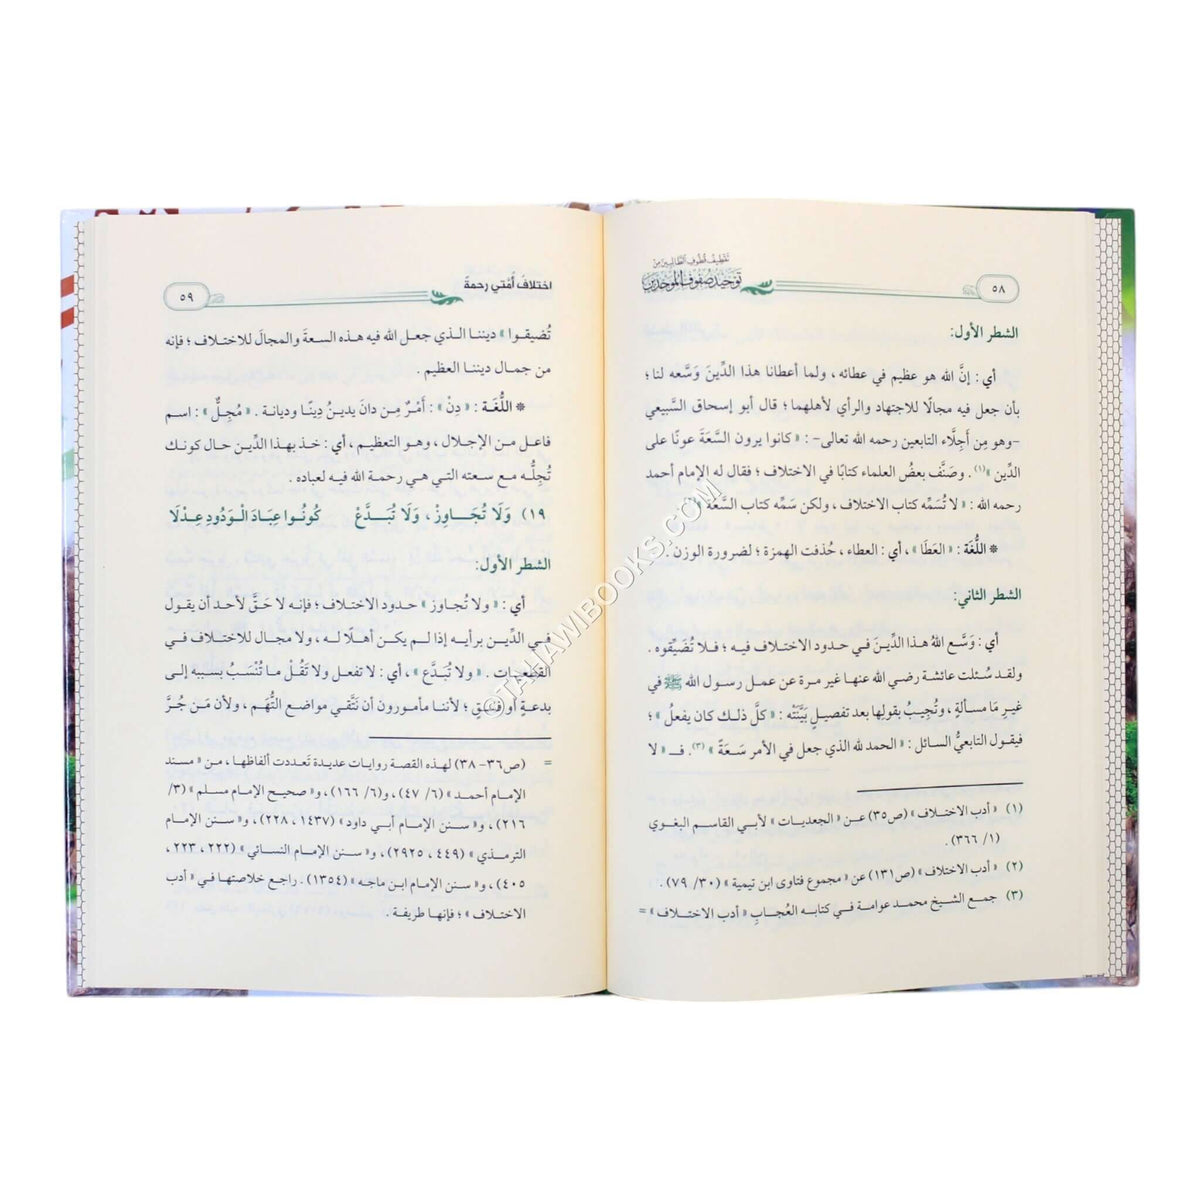 ٥٨
تقطيف قطوف الطالبين من
توحيد صفوف الموحدين
الشطر الأول:
أي : إنَّ الله هو عظيم في عطائه ، ولما أعطانا هذا الدِّينَ وسَّعه لنا ؛
بأن جعل فيه مجالًا للاجتهاد والرأي لأهلهما ؛ قال أبو إسحاق السَّبيعي
-وهو مِن أَجِلَّاء التابعين رحمه الله تعالى- : « كانوا يرون السَّعَةَ عونًا على
الدِّين »(١) . وصَنَّف بعضُ العلماء كتابًا في الاختلاف ؛ فقال له الإمام أحمد
رحمه الله : « لا تُسَمِّه كتاب الاختلاف ، ولكن سَمِّه كتاب السَّعَة »
* اللُّغَة : « العَطَا » ، أي : العطاء ، حُذفت الهمزة ؛ لضرورة الوزن .
الشطر الثاني:
أي : وَسَّع اللهُ هذا الدِّينَ في حدود الاختلاف فيه ؛ فلا تُضَيِّقوه .
ولقد سُئلت عائشة رضي الله عنها غير مرة عن عمل رسول الله ﷺ في
غيرِ مَا مسألةٍ ، وتُجِيبُ بقولها بعد تفصيلٍ بَيَّنَتْه : « كلَّ ذلك كان يفعلُ » ؛
فيقول التابعيُّ السائل : « الحمد لله الذي جعل في الأمر سَعَةً » (٣). فـ « لا
(١) « أدب الاختلاف » (ص٣٥) عن « الجعديات » لأبي القاسم البغوي
(١/ ٣٦٦) .
(٢) « أدب الاختلاف » (ص١٣١) عن « مجموع فتاوى ابن تيمية » (٣٠/ ٧٩) .
(٣) جمع الشيخ محمد عوامة في كتابه العُجابِ « أدب الاختلاف » =
اختلافُ أُمّتي رحمةَ
٥٩
تُضيقوا » ديننا الذي جعل الله فيه هذه السعة والمجالَ للاختلاف ؛ فإنه
من جمال ديننا العظيم .
* اللُّغَة : « دِنْ » : أَمْرٌ مِن دانَ يدينُ دِينًا وديانة . « مُجِلٌّ » : اسم
فاعل من الإجلال ، وهو التعظيم ، أي : خذ بهذا الدِّين حال كونك
تُجِلُّه مع سعته التي هي رحمة الله فيه لعباده .
١٩) وَلَا تُجَاوِزْ ، وَلَا تُبَدَّعْ كُونُوا عِبَادَ الْوَدُودِ عِدْلَا
الشطر الأول:
أي : « ولا تُجاوز » حدود الاختلاف ؛ فإنه لا حقَّ لأحد أن يقول
في الدِّين برأيه إذا لم يكن أهلًا له ، ولا مجال للاختلاف في
القطعيات . « ولا تُبَدَّع » ، أي : لا تفعل ولا تَقُلْ ما تُنْسَبُ بسببه إلى
بدعةٍ أو فسقٍ ؛ لأننا مأمورون أن نَتَّقيَ مواضع التُّهَم ، ولأن مَن جُرَّ
= (ص٣٦- ٣٨) لهذه القصة روايات عديدة تَعددت ألفاظها ، من « مسند
الإمام أحمد » (٦/ ٤٧) ، و(٦/ ١٦٦) ، و« صحيح الإمام مسلم » (٣/
٢١٦) ، و« سنن الإمام أبي داود » (١٤٣٧ ، ٢٢٨) ، و« سنن الإمام
الترمذي » (٤٤٩ ، ٢٩٢٥) ، و« سنن الإمام النسائي » (٢٢٢ ، ٢٢٣ ،
٤٠٥) ، و« سنن الإمام ابن ماجه » (١٣٥٤) . راجع خلاصتها في « أدب
الاختلاف » ؛ فإنها طريفة .
©TAHAWIBOOKS.COM